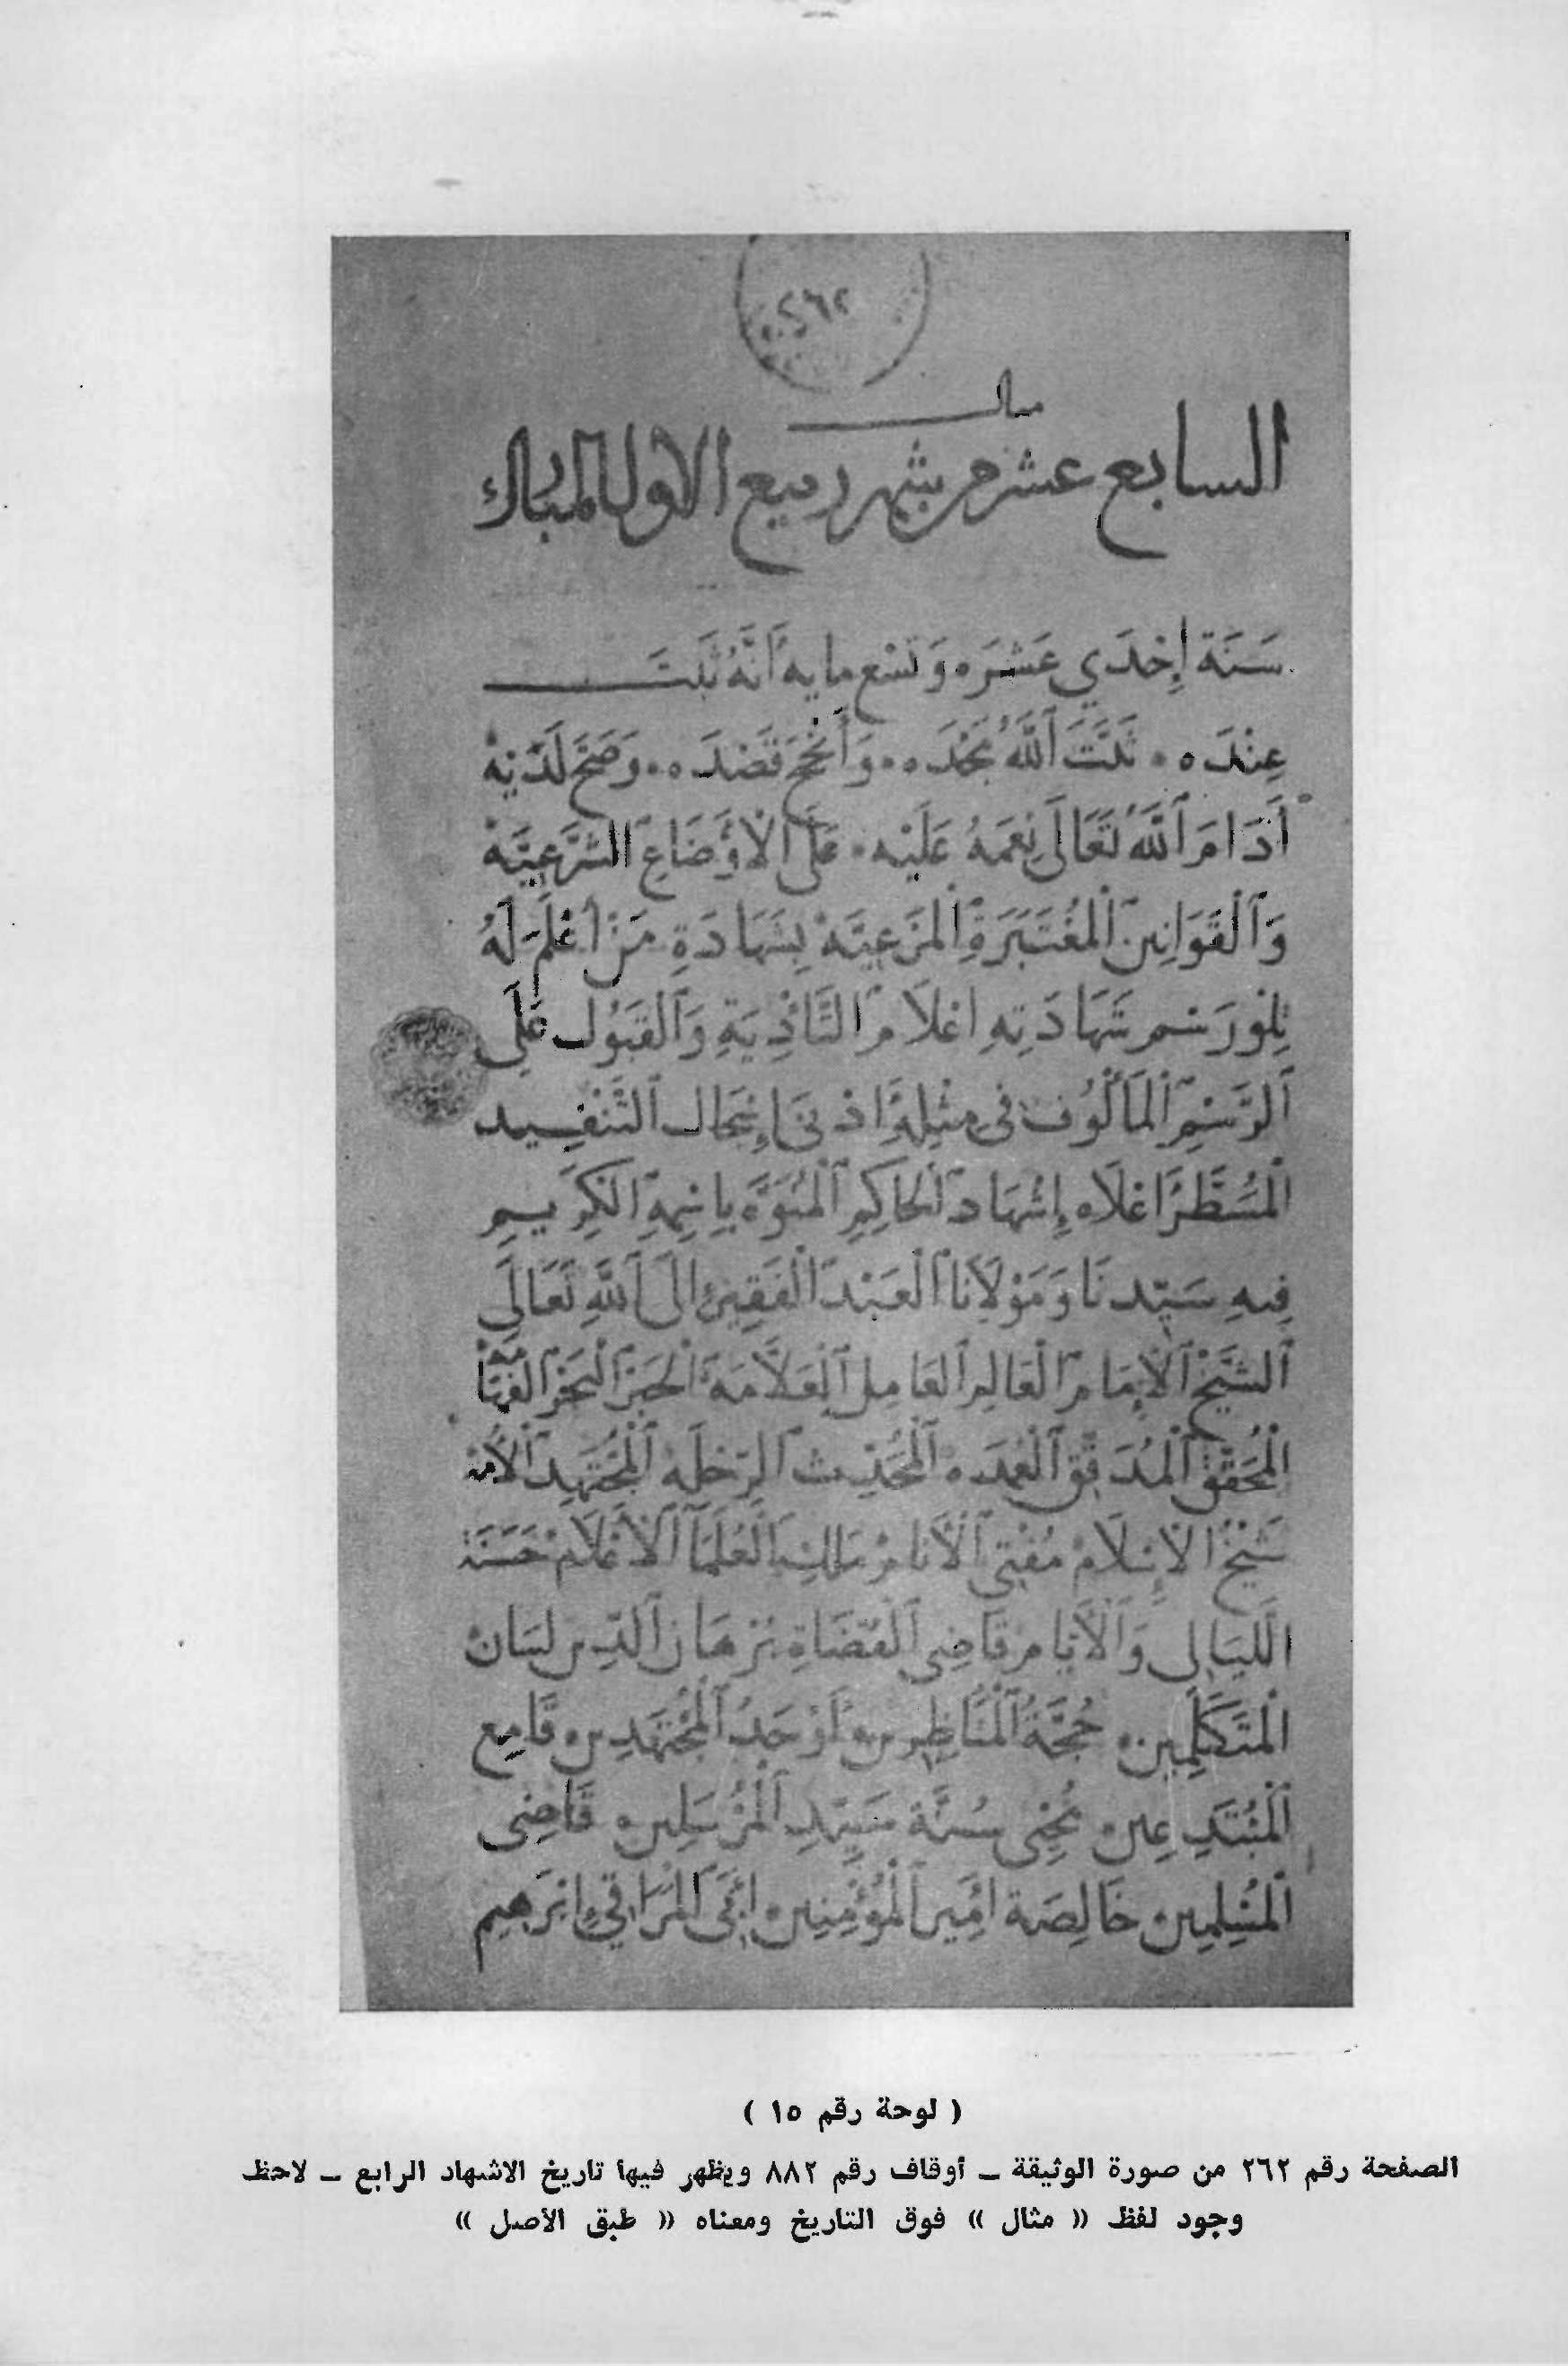 ٢٦٢
مثال
السابع عشر من شهر ربيع الاول المبارك
سَنَة إِحْدَي عَشَره وَتسْع مايه أَنَّهُ ثَبَتَ
عِنْدَه ثَبَّتَ اللَّهُ مَجْدَه وَأَنْجَحَ قَصْدَه وَصَحَّ لَدَيْهِ
أَدَامَ اللَّهُ تَعَالَى نِعَمَهُ عَلَيْه عَلَى الْأَوْضَاعِ الشَّرْعِيَّه
وَالْقَوَانِينِ الْمُعْتَبَرَةِ الْمَرْعِيَّه بِشَهَادَةِ مَنْ أَعْلَمَ لَهُ
تِلْوَ رَسْم شَهَادَتِهِ اعْلَامَ التَّأْدِيَةِ وَالْقَبُول عَلَى
الرَّسْمِ الْمَأْلُوف في مِثْلِهِ اذ في إِسْجَال التَّنْفِيد
الْمُسَطَّر اعْلَاه إِشْهَاد الْحَاكِمِ الْمُنَوَّه بِاسْمِهِ الْكَرِيمِ
فِيهِ سَيِّدنَا وَمَوْلَانَا الْعَبْد الْفَقِير الَى اللَّهِ تَعَالَى
الشَّيْخ الْإِمَام الْعَالِم الْعَامِل الْعَلَّامَة الْحَبْر الْبَحْر الْفَهَّامَة
الْمُحَقِّق الْمُدَقِّق الْعُمْدَه الْمُحَدِّث الرِّحْلَه الْمُجْتَهِد الْأُمَّة
شَيْخ الْإِسْلَام مُفْتِي الْأَنَام مَلِك الْعُلَمَاءِ الْأَعْلَام حَسَنَة
اللَّيَالِي وَالْأَيَّام قَاضِي الْقُضَاةِ بُرْهَان الدِّين لِسَان
الْمُتَكَلِّمِين حُجَّة الْمُنَاظِرِين أَوْحَدُ الْمُجْتَهِدِين قَامِع
الْمُبْتَدِعِين مُحْيِى سُنَّة سَيِّدِ الْمُرْسَلِين قَاضِى
الْمُسْلِمِين خَالِصَة امِير الْمُؤْمِنِين ابِى الْمَرَاقِي ابْرَهِيم
( لوحة رقم ١٥ )
الصفحة رقم ٢٦٢ من صورة الوثيقة – أوقاف رقم ٨٨٢ ويظهر فيها تاريخ الاشهاد الرابع – لاحظ
وجود لفظ « مثال » فوق التاريخ ومعناه « طبق الأصل »